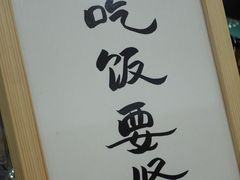 吃饭要